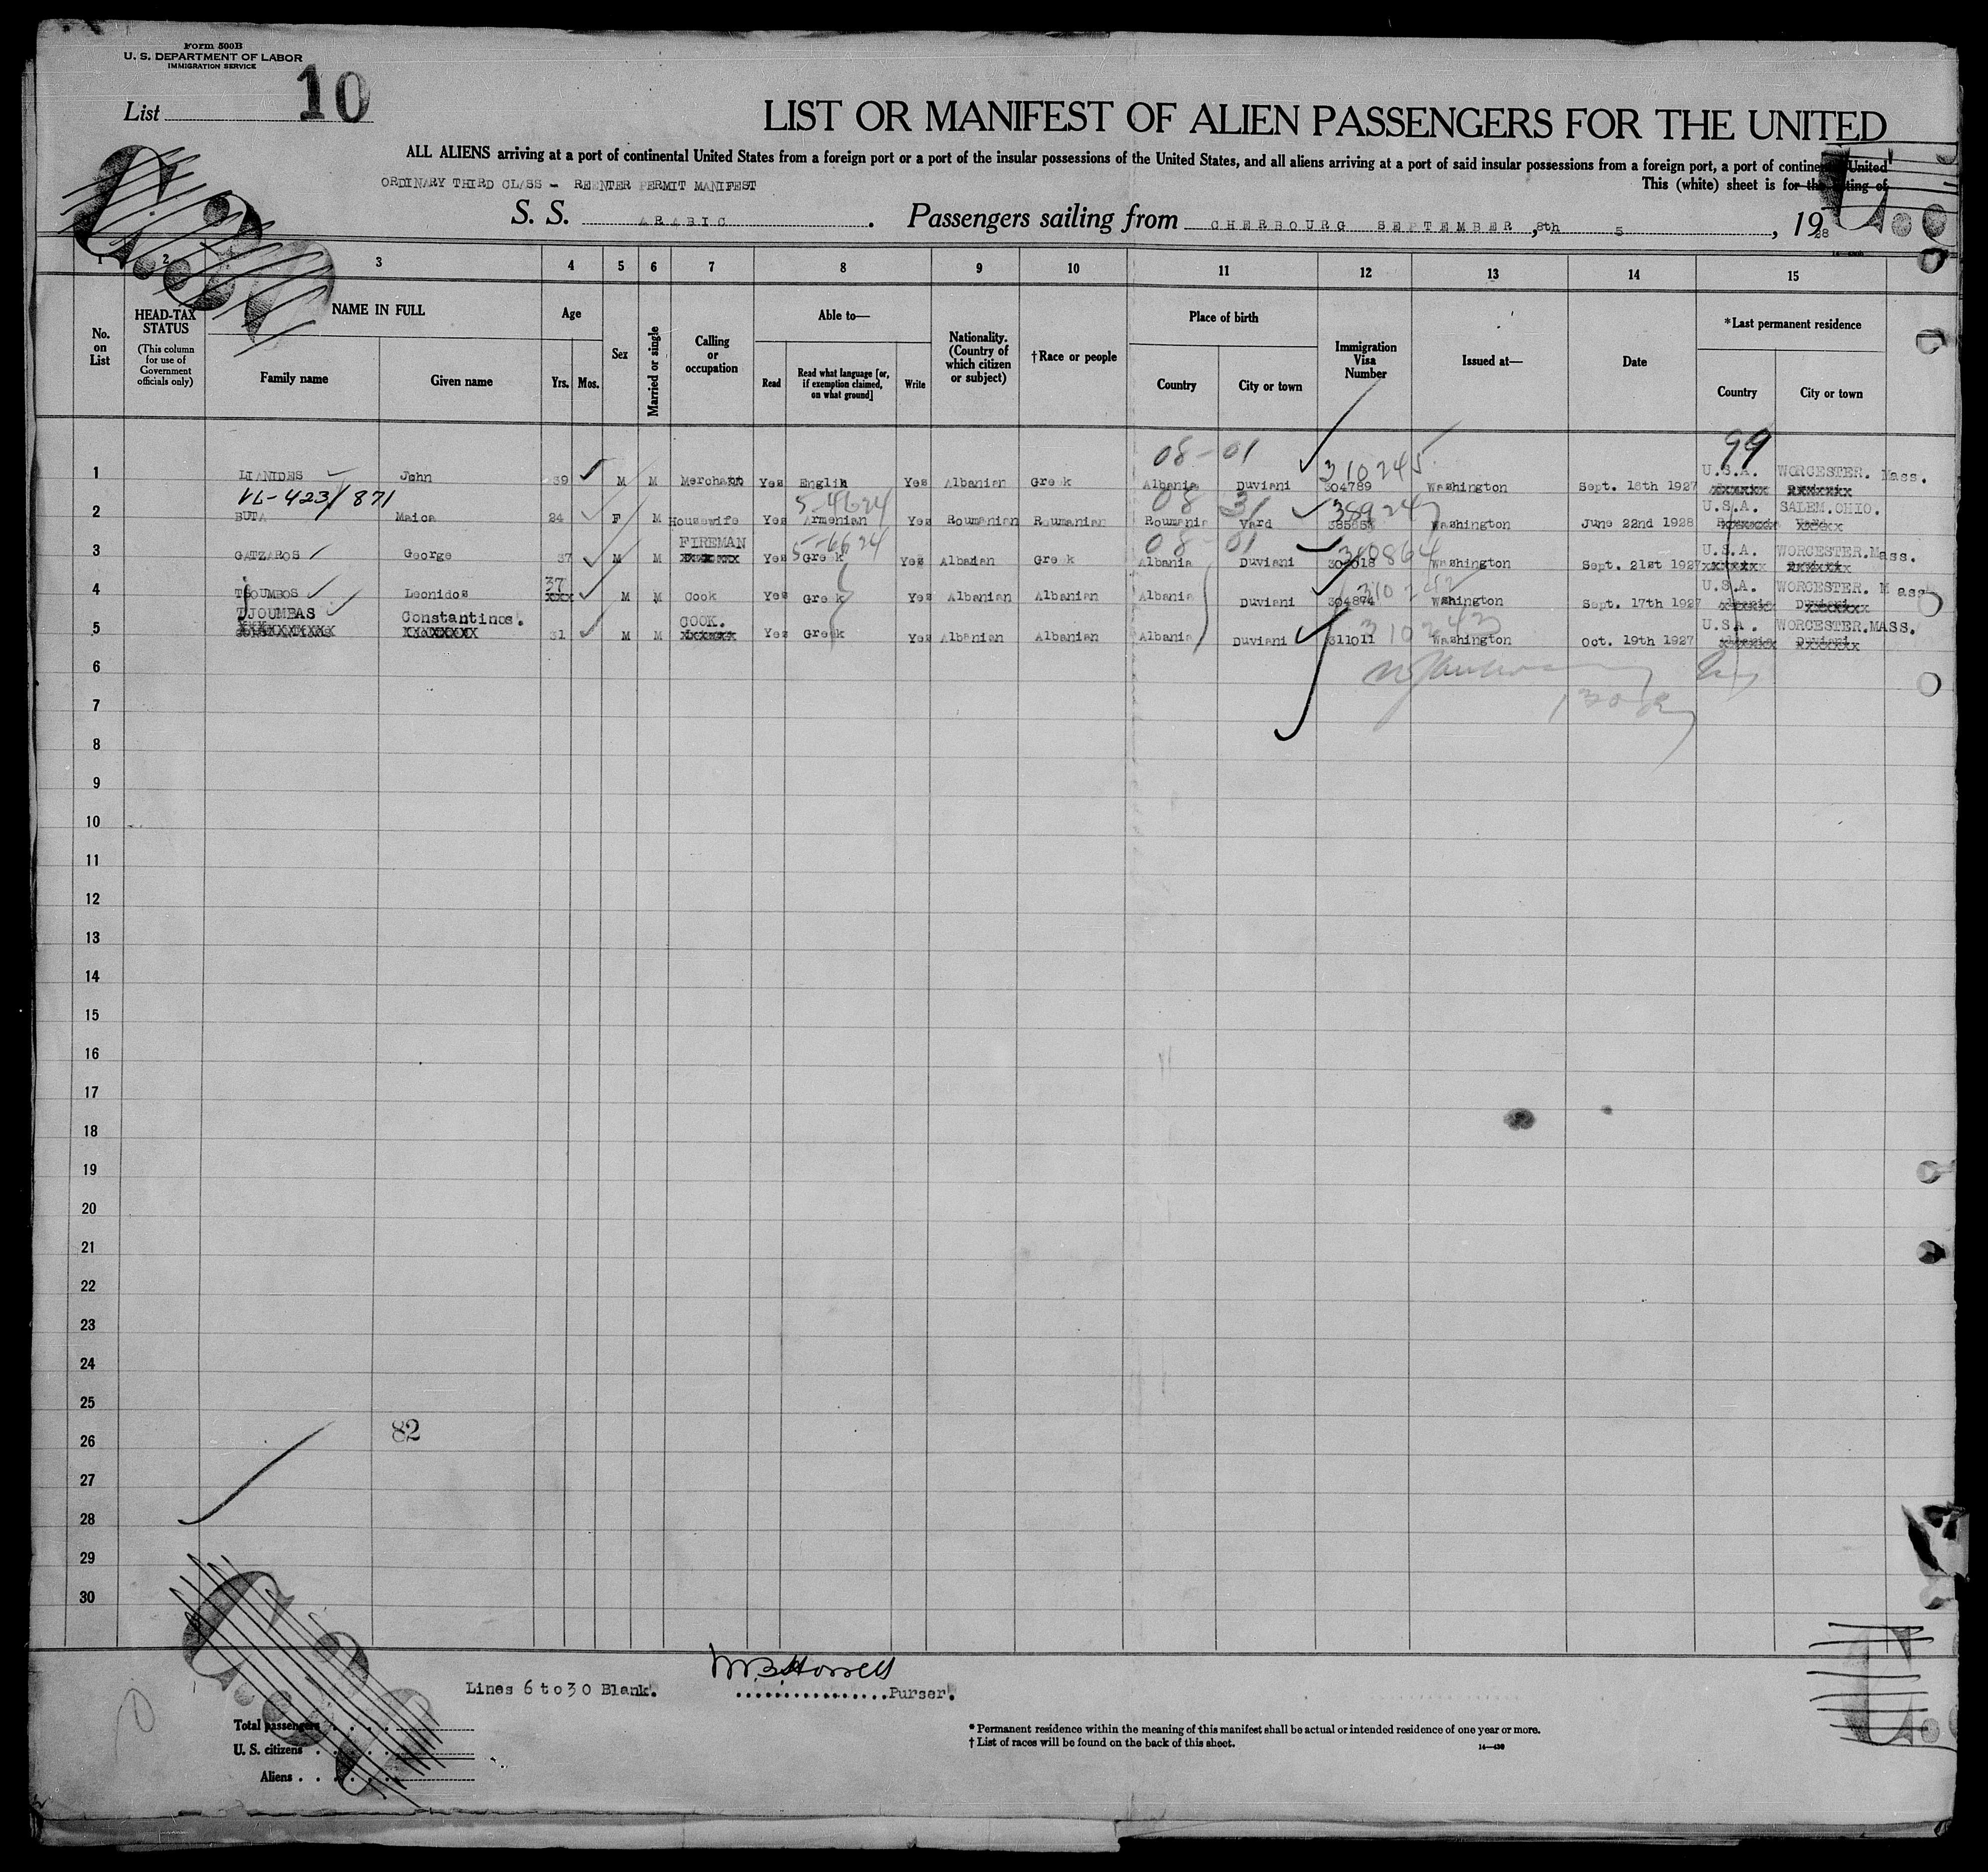 Form 500B
U. S. DEPARTMENT OF LABOR
IMMIGRATION SERVICE
List 10
LIST OR MANIFEST OF ALIEN PASSENGERS FOR THE UNITED
ALL ALIENS arriving at a port of continental United States from a foreign port or a port of the insular possessions of the United States, and all aliens arriving at a port of said insular possessions from a foreign port, a port of continental United
ORDINARY THIRD CLASS - REENTER PERMIT MANIFEST
This (white) sheet is for the listing of
S. S. ARABIC. Passengers sailing from CHERBOURG SEPTEMBER, 8th 5, 1928
1 2 3 4 5 6 7 8 9 10 11 12 13 14 15
No. on List
HEAD-TAX STATUS
(This column for use of Government officials only)
NAME IN FULL
Family name
Given name
Age
Yrs. Mos.
Sex
Married or single
Calling or occupation
Able to—
Read
Read what language [or, if exemption claimed, on what ground]
Write
Nationality. (Country of which citizen or subject)
†Race or people
Place of birth
Country
City or town
Immigration Visa Number
Issued at—
Date
*Last permanent residence
Country
City or town
08-01 99
1 LIANIDES John 39 M M Merchant Yes English Yes Albanian Greek Albania Duviani 310245 304789 Washington Sept. 16th 1927 U.S.A. WORCESTER. Mass.
VL-423/871 5-4624 08 31
2 BUTA Maica 24 F M Housewife Yes Armenian Yes Roumanian Roumanian Roumania Vard 389247 Washington June 22nd 1928 U.S.A. SALEM.OHIO.
5-6624 08-01
3 GATZAROS George 37 M M FIREMAN Yes Greek Yes Albanian Greek Albania Duviani 310864 Washington Sept. 21st 1927 U.S.A. WORCESTER.Mass.
4 TSOUMBOS Leonidos 37 M M Cook Yes Greek Yes Albanian Albanian Albania Duviani 304874 Washington Sept. 17th 1927 U.S.A. WORCESTER. Mass
5 TJOUMBAS Constantinos. 31 M M COOK. Yes Greek Yes Albanian Albanian Albania Duviani 311011 Washington Oct. 19th 1927 U.S.A. WORCESTER.MASS.
6
7
8
9
10
11
12
13
14
15
16
17
18
19
20
21
22
23
24
25
82
26
27
28
29
30
Lines 6 to 30 Blank.
Purser.
Total passengers
U. S. citizens
Aliens
* Permanent residence within the meaning of this manifest shall be actual or intended residence of one year or more.
† List of races will be found on the back of this sheet.
14—430